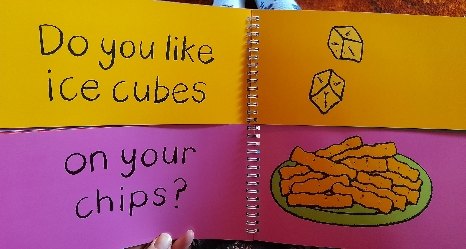 Do you like
ice cubes
on your
chips?